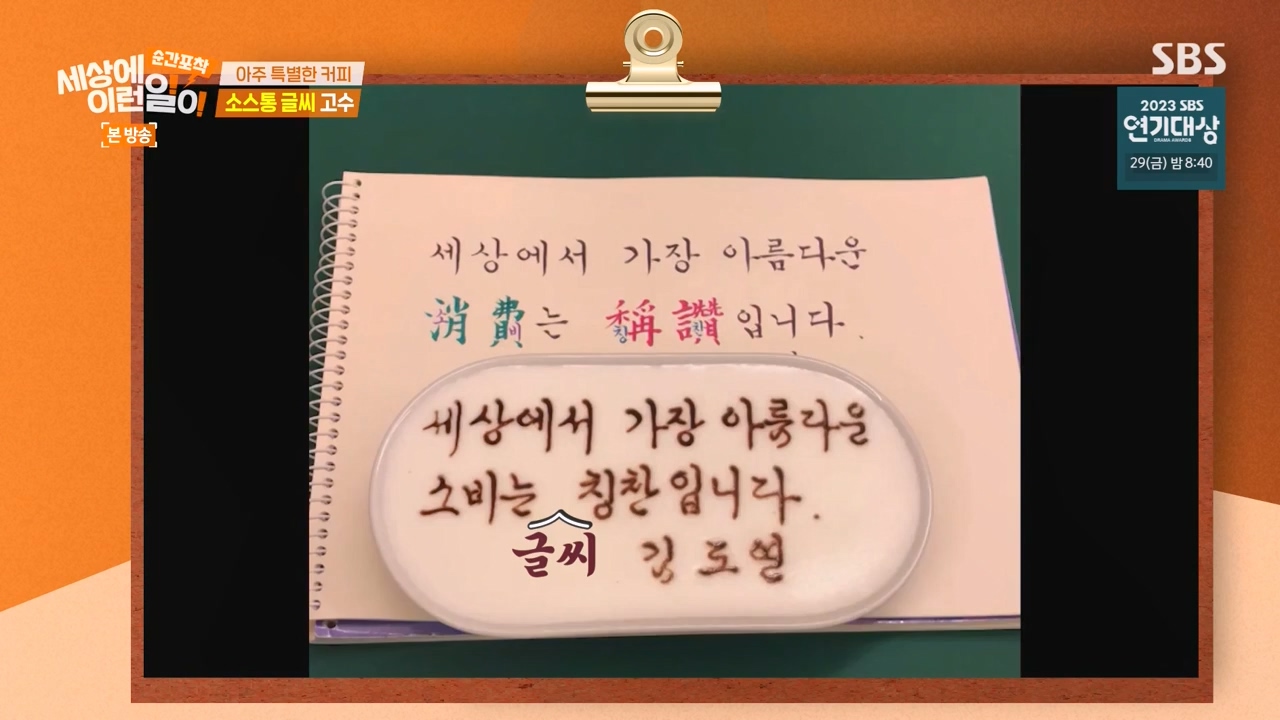 순간포착
세상에
이런일이!
본 방송
아주 특별한 커피
소스통 글씨 고수
SBS
2023 SBS
연기대상
DRAMA AWARDS
29(금) 밤 8:40
세상에서 가장 아름다운
消소費비는 稱칭讚찬입니다.
세상에서 가장 아름다운
소비는 칭찬입니다.
글씨 김도연